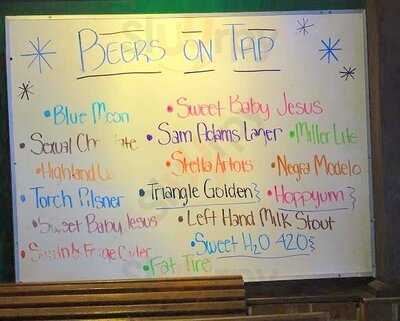 BEERS ON TAP
Blue Moon
Sweet Baby Jesus
Sexual Chocolate
Sam Adams Lager
Miller Lite
Highland
Stella Artois
Negra Modelo
Torch Pilsner
Triangle Golden
Hoppyum
Sweet Baby Jesus
Left Hand Milk Stout
Cider
Sweet H2O 420
Fat Tire